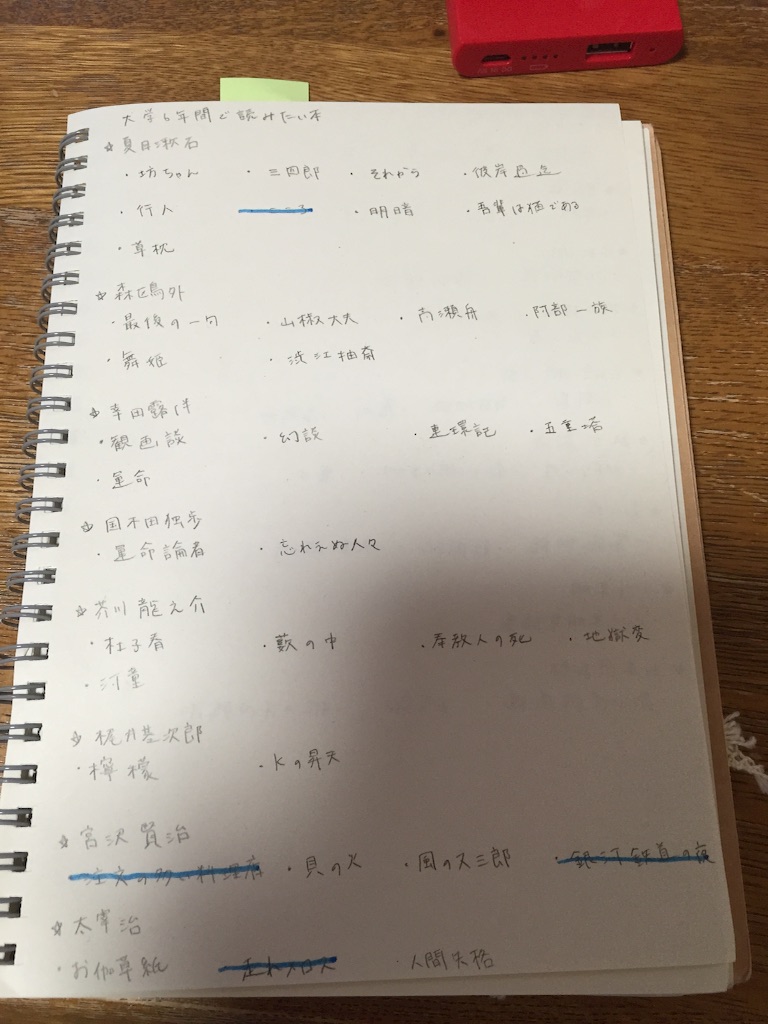 大学6年間で読みたい本
☆夏目漱石
・坊ちゃん ・三四郎 ・それから ・彼岸過迄
・行人 ・こころ ・明暗 ・吾輩は猫である
・草枕
☆森鴎外
・最後の一句 ・山椒大夫 ・高瀬舟 ・阿部一族
・舞姫 ・渋江抽斎
☆幸田露伴
・観画談 ・幻談 ・連環記 ・五重塔
・運命
☆国木田独歩
・運命論者 ・忘れえぬ人々
☆芥川龍之介
・杜子春 ・藪の中 ・奉教人の死 ・地獄変
・河童
☆梶井基次郎
・檸檬 ・Kの昇天
☆宮沢賢治
・注文の多い料理店 ・貝の火 ・風の又三郎 ・銀河鉄道の夜
☆太宰治
・お伽草紙 ・走れメロス ・人間失格